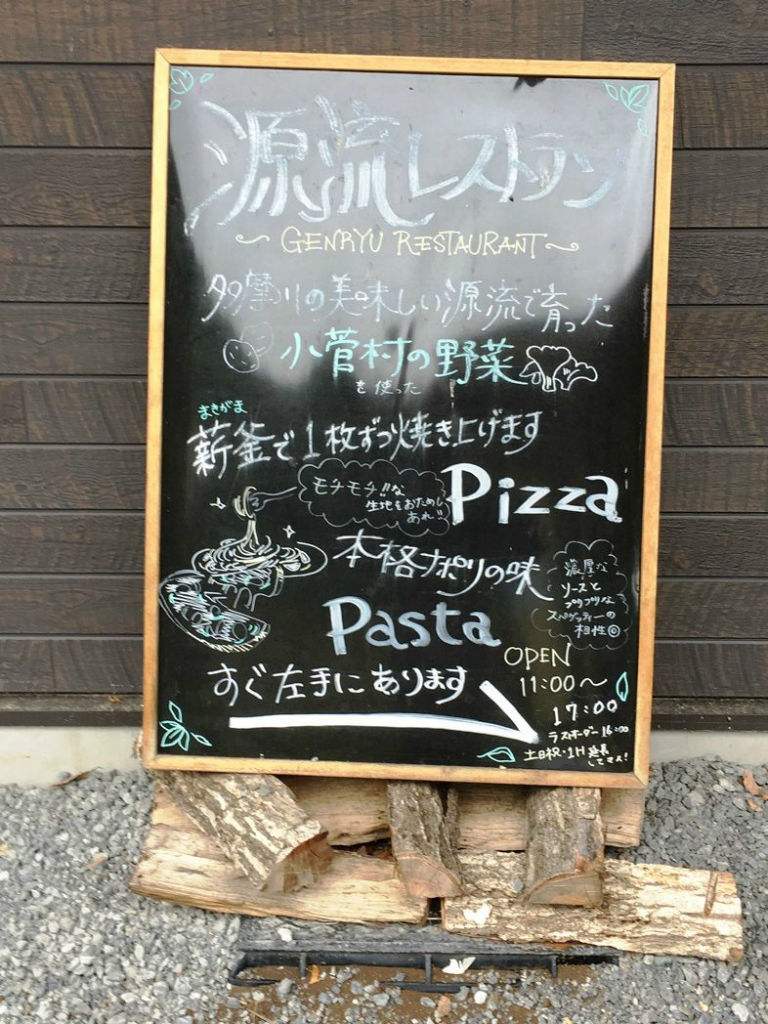 源流レストラン
~ GENRYU RESTAURANT ~
多摩川の美味しい源流で育った
小菅村の野菜
を使った
まきがま
薪釜で1枚ずつ焼き上げます
モチモチ!!な
生地をおためし
あれ!!
Pizza
本格ナポリの味
濃厚な
ソースと
プリプリな
スパゲッティーの
相性◎
Pasta
OPEN
11:00〜
17:00
ラストオーダー 16:00
土日祝・1H 延長
してマス!
すぐ左手にあります